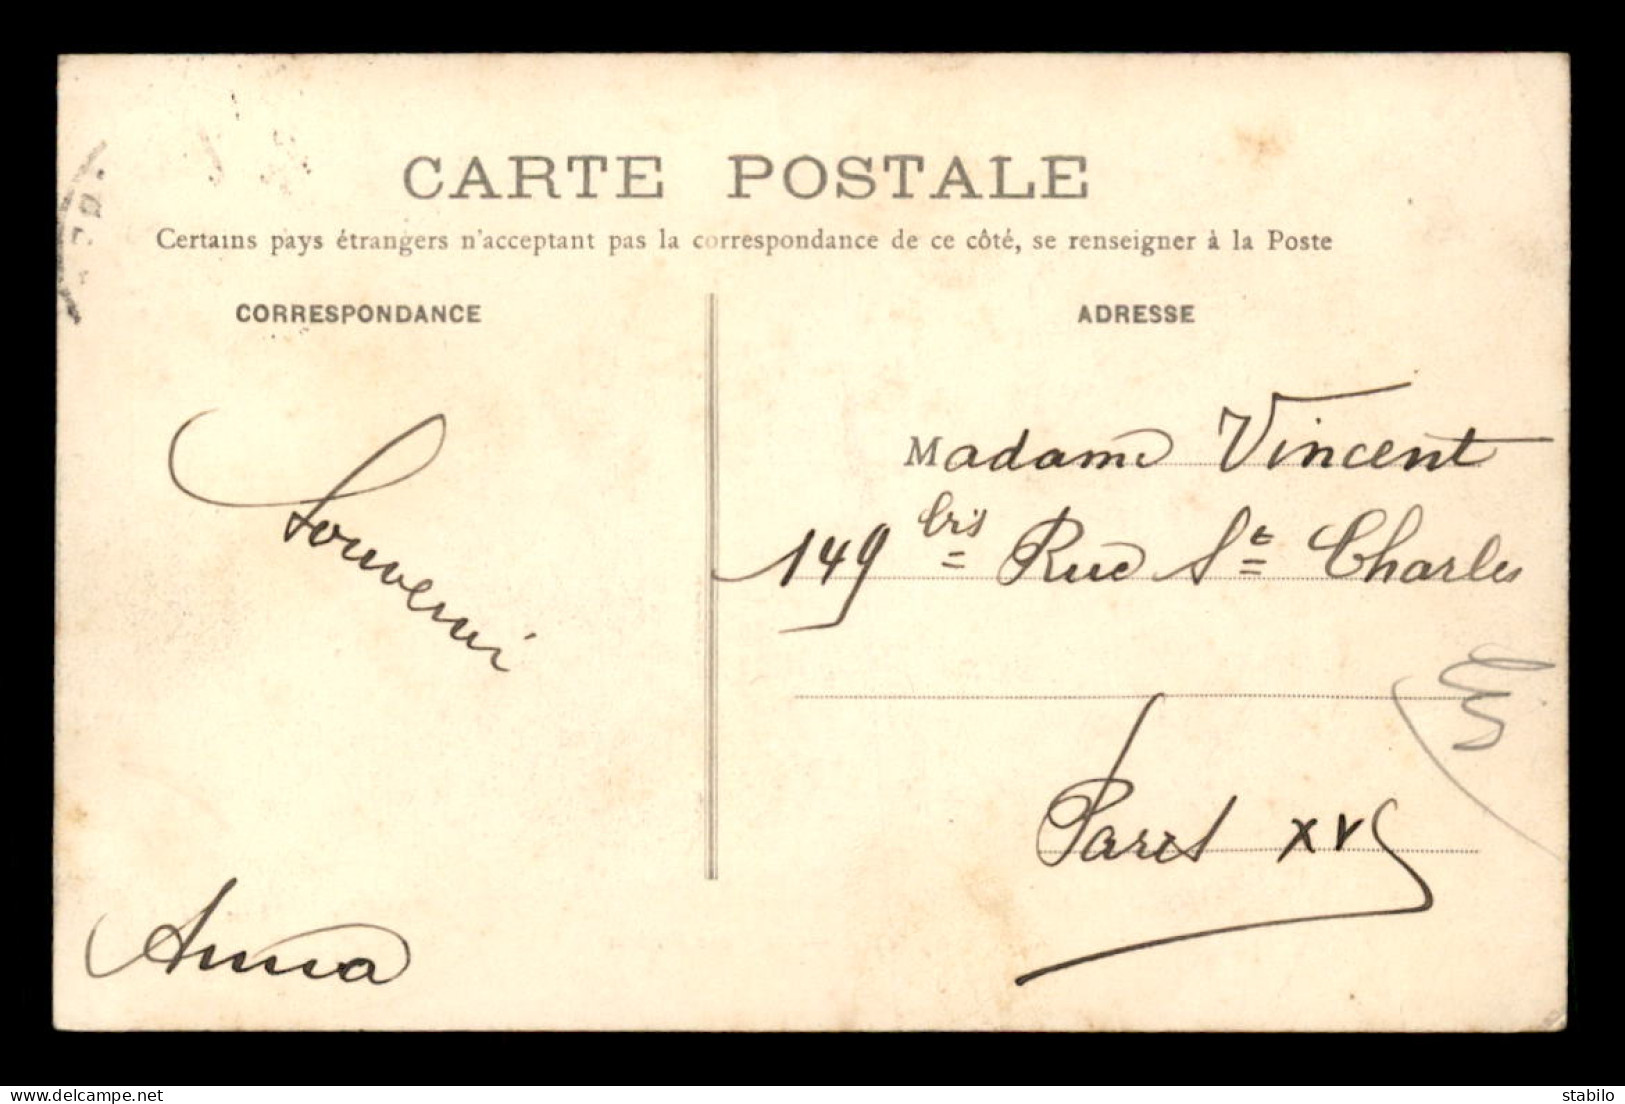 CARTE POSTALE
Certains pays étrangers n'acceptant pas la correspondance de ce côté, se renseigner à la Poste
CORRESPONDANCE
ADRESSE
Souvenir
Anna
Madame Vincent
149 bis Rue St Charles
Paris XV
delcampe.net
stabilo